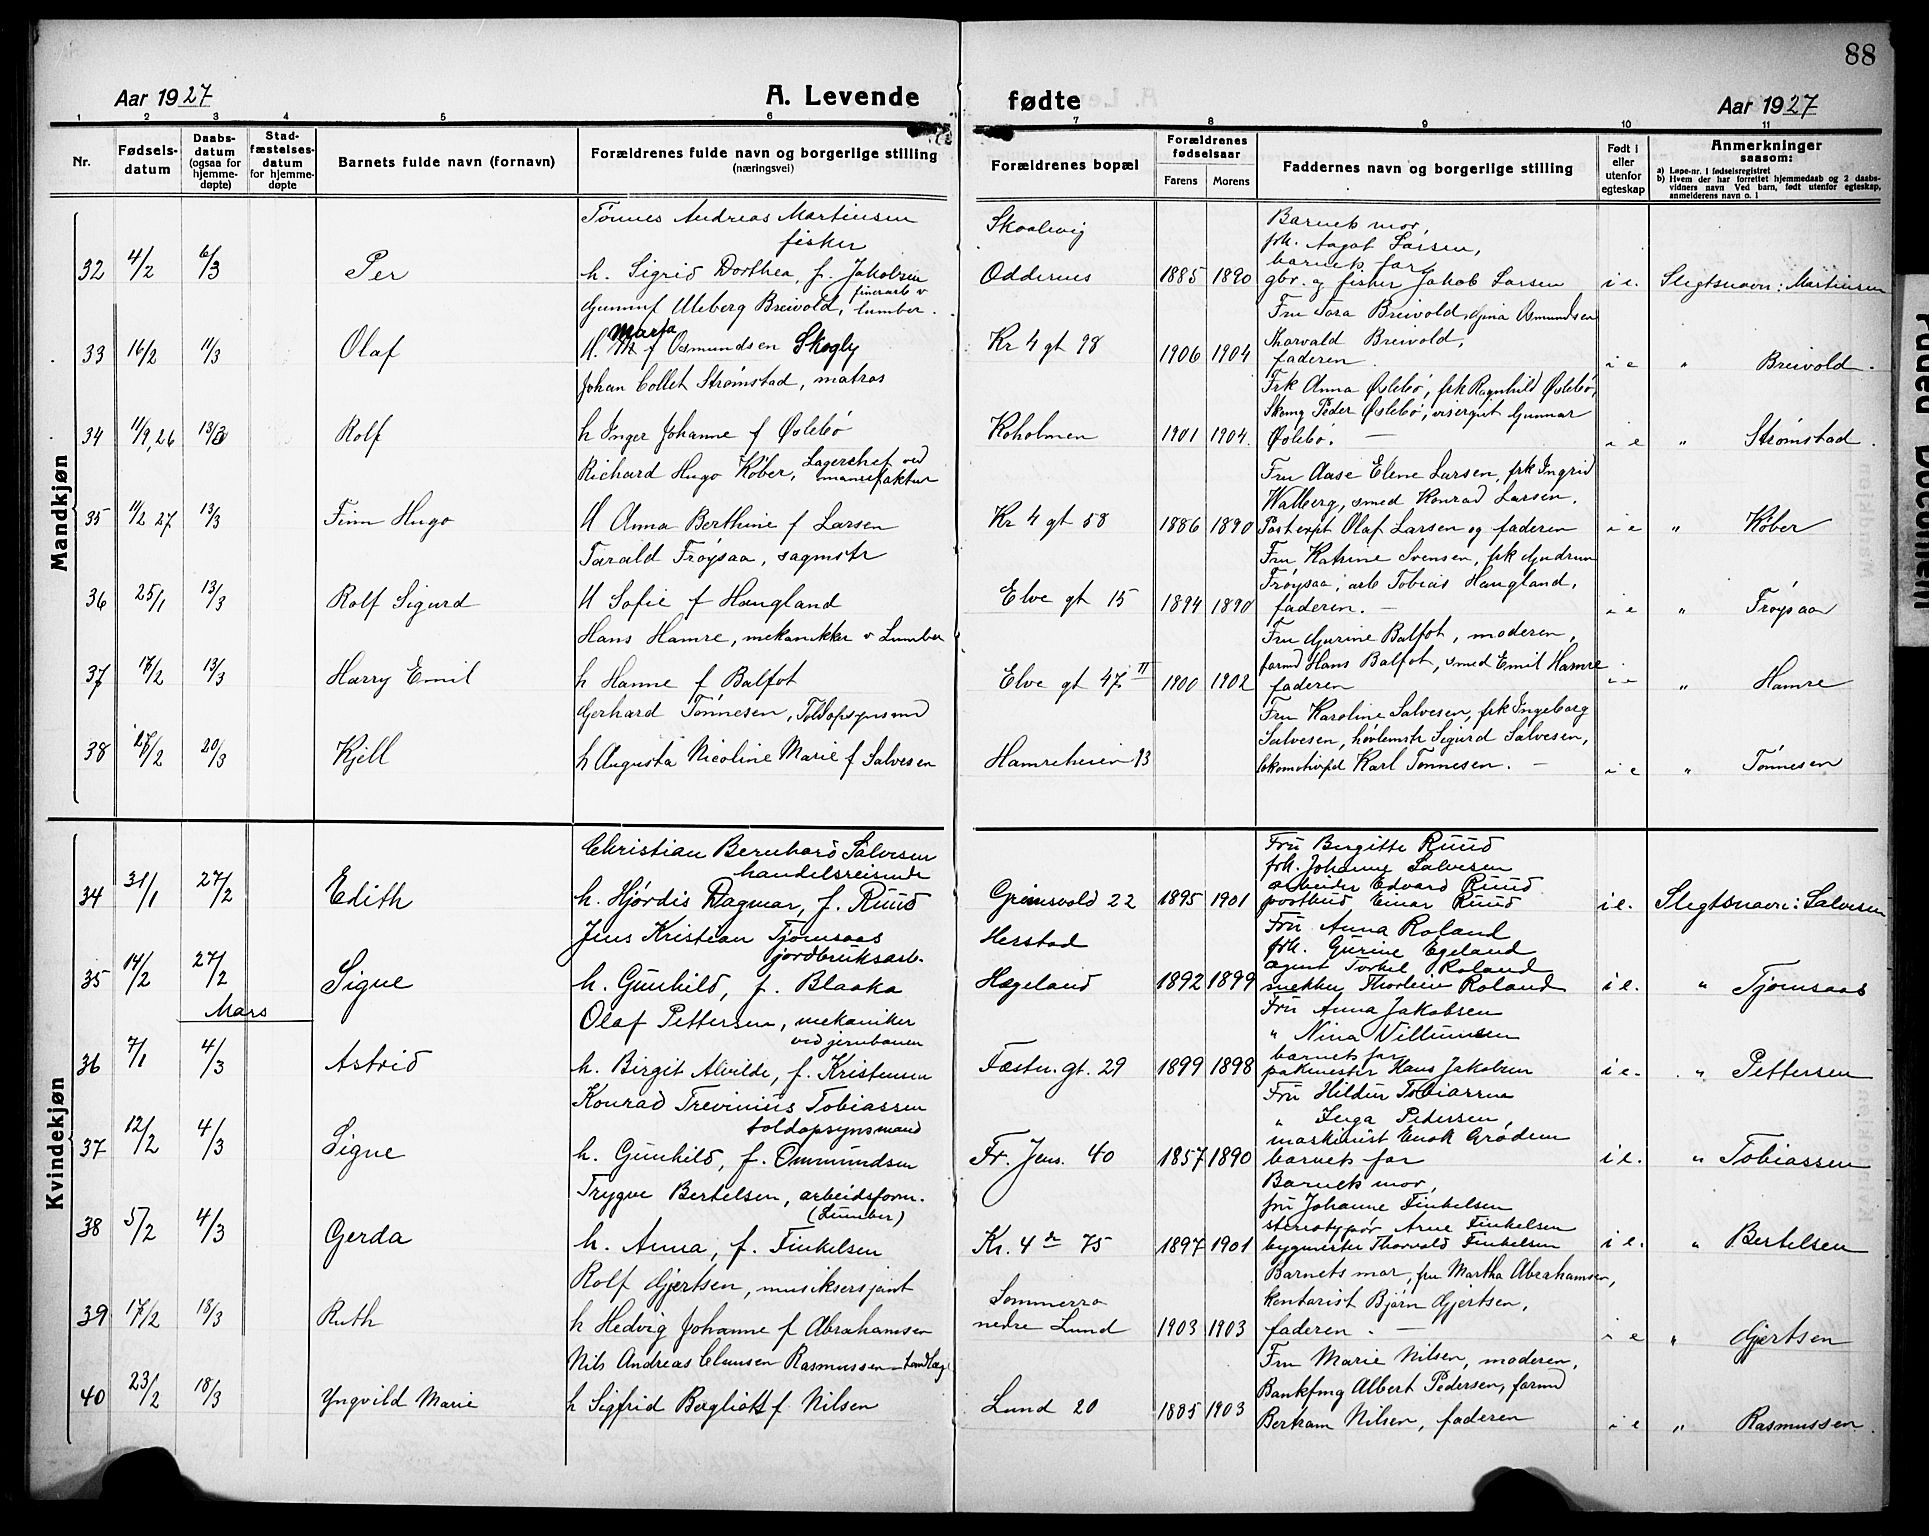 88
Aar 1927
A. Levende
fødte
Aar 1927
1 2 3 4 5 6 7 8 9 10 11
Nr.
Fødsels-
datum
Daabs-
datum
(ogsaa for
hjemme-
døpte)
Stad-
fæstelses-
datum
for hjemme-
døpte
Barnets fulde navn (fornavn)
Forældrenes fulde navn og borgerlige stilling
(næringsvei)
Forældrenes bopæl
Forældrenes
fødselsaar
Farens Morens
Faddernes navn og borgerlige stilling
Født i
eller
utenfor
egteskap
Anmerkninger
saasom:
a) Løpe-nr. i fødselsregistret
b) Hvem der har forrettet hjemmedaab og 2 daabs-
vidners navn Ved barn, født utenfor egteskap,
anmelderens navn o. l
Mandkjøn
Tønnes Andreas Martinsen
fisker
32 4/2 6/3 Per h. Sigrid Dorthea, f. Jakobsen
Skaalevig
Oddernes 1885 1890
Barnets mor,
frk. Aagot Larsen,
barnets far,
gbr. og fisker Jakob Larsen
i e. Slegtsnavn: Martinsen
Gunnuf Uleberg Breivold, finerarb v
Lumber.
33 16/2 11/3 Olaf H. Marta f Osmundsen Skogly
Kr 4 gt 98 1906 1904
Fru Tora Breivold, Gina Osmundsen
Thorvald Breivold,
faderen
i e " Breivold.
Johan Collet Strømstad, matros
34 11/9, 26 13/3 Rolf h Inger Johanne f Øslebø
Koholmen 1901 1904.
Frk Anna Øslebø, frk Ragnhild Øslebø,
Peder Øslebø, visergut Gunnar
Øslebø. —
i e " Strømstad.
Richard Hugo Køber, Lagerchef ved
manufaktur
35 11/2 27 13/3 Finn Hugo H Anna Berthine f Larsen
Kr 4 gt 58 1886 1890
Fru Aase Elene Larsen, frk Ingrid
Walberg, smed Konrad Larsen,
Postexpt Olaf Larsen og faderen
i e " Køber
Tarald Frøysaa, sagmstr
36 25/1 13/3 Rolf Sigurd H Sofie f Haugland
Elve gt 15 1894 1890
Fru Katrine Svensen, frk Gudrun
Frøysaa, arb Tobias Haugland,
faderen. —
i e " Frøysaa
Hans Hamre, mekanikkr v Lumber
37 17/2 13/3 Harry Emil h Hanne f Balfot
Elve gt 47 II 1900 1902
Fru Gurine Balfot, moderen,
formd Hans Balfot, smed Emil Hamre
faderen
i e " Hamre
Gerhard Tønnesen, Toldopsynsmd
38 27/2 20/3 Kjell h Augusta Nicoline Marie f Salvesen
Hamreheien 93
Fru Karoline Salvesen, frk Ingeborg
Salvesen, høvlemstr Sigurd Salvesen,
Karl Tønnesen. —
i e " Tønnesen
Kvindekjøn
Christian Bernhard Salvesen
handelsreisende
34 31/1 27/2 Edith h. Hjørdis Dagmar, f. Ruud
Grimsvold 22 1895 1901
Fru Bergitte Ruud
frk. Johanne Salvesen
arbeider Edvard Ruud
postbud Einar Ruud
i e. Slegtsnavn: Salvesen
Jens Kristian Tjomsaas
jordbruksarb.
35 14/2 27/2 Signe h. Gunhild, f. Blaaka
Herstad
Hægeland 1892 1899
Fru Anna Roland
frk. Gurine Egeland
agent Torkel Roland
snekker Thorleiv Roland
i e. " Tjomsaas
Mars
Olaf Pettersen, mekaniker
ved jernbanen
36 7/1 4/3 Astrid h. Birgit Alvilde, f. Kristensen
Fæstn. gt. 29 1899 1898
Fru Anna Jakobsen
" Nina Villumsen
barnets far
pakmester Hans Jakobsen
i e. " Pettersen
Konrad Trevinius Tobiassen
toldopsynsmand
37 12/2 4/3 Signe h. Gunhild, f. Ommundsen
Fr. Jens. 40 1857 1890
Fru Hildur Tobiassen
" Inga Pedersen,
maskinist Enok Grødem
barnets far
i e. " Tobiassen
Trygve Bertelsen, arbeidsform.
(Lumber)
38 5/2 4/3 Gerda h. Anna, f. Finkelsen
Kr. 4 75 1897 1901
Barnets mor,
fru Johanne Finkelsen
stenotypør Arne Finkelsen
bygmester Thorvald Finkelsen
i e. " Bertelsen
Rolf Gjertsen, musiksersjant
39 17/2 18/3 Ruth h Hedvig Johanne f Abrahamsen
Sommerro
nedre Lund 1903 1903
Barnets mor, fru Martha Abrahamsen,
kontorist Bjørn Gjertsen,
faderen. —
i e " Gjertsen
Nils Andreas Clausen Rasmussen - tandlæge
40 23/2 18/3 Yngvild Marie h Sigfrid Bergliott f Nilsen
Lund 20 1885 1903
Fru Marie Nilsen, moderen,
Bankfmg Albert Pedersen, formd
Bertram Nilsen, faderen
i e " Rasmussen.